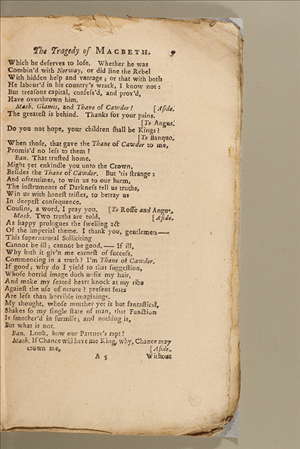 The Tragedy of MACBETH. 9
Which he deserves to lose. Whether he was
Combin'd with Norway, or did line the Rebel
With hidden help and vantage; or that with both
He labour'd in his country's wrack, I know not:
But treasons capital, confess'd, and prov'd,
Have overthrown him.
Macb. Glamis, and Thane of Cawdor! [Aside.
The greatest is behind. Thanks for your pains.
[To Angus.
Do you not hope, your children shall be Kings?
[To Banquo.
When those, that gave the Thane of Cawdor to me,
Promis'd no less to them?
Ban. That trusted home.
Might yet enkindle you unto the Crown,
Besides the Thane of Cawdor. But 'tis strange:
And oftentimes, to win us to our harm,
The instruments of Darkness tell us truths,
Win us with honest trifles, to betray us
In deepest consequence.
Cousins, a word, I pray you. [To Rosse and Angus.
Macb. Two truths are told, [Aside.
As happy prologues the swelling act
Of the imperial theme. I thank you, gentlemen —
This supernatural Solliciting
Cannot be ill; cannot be good. — If ill,
Why hath it giv'n me earnest of success,
Commencing in a truth? I'm Thane of Cawdor.
If good, why do I yield to that suggestion,
Whose horrid image doth unfix my hair,
And make my seated heart knock at my ribs
Against the use of nature? present fears
Are less than horrible imaginings.
My thought, whose murther yet is but fantastical,
Shakes so my single state of man, that Function
Is smother'd in surmise; and nothing is,
But what is not.
Ban. Look, how our Partner's rapt!
Macb. If Chance will have me King, why, Chance may
crown me, [Aside.
A 5 Without